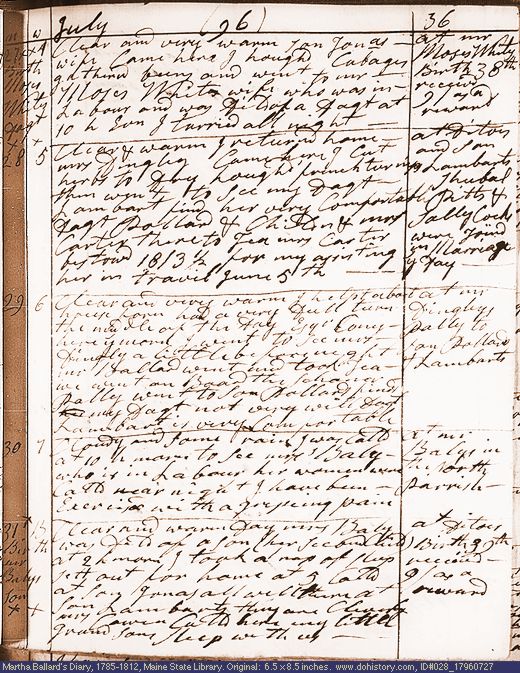 July (96) 36
n w
27 4 Clear and very warm Jon Jonas at mr
Birth wife Came here I hough Cabages Moses Whits
Moses gatherd beens and went to mr Birth 38th
White Moses White wife who was in receivd
Dagt Labour and was Dd of a Dagt at 9/ as a
10 h Ion I tarried all night reward
28 5 Clear & warm I returnd home at Ditoes
mrs Dingley Came here I Cut and Son
herbs to Dry houghd french turnips Lambarts
then went to see my Dagt Shubal
Lambart find her very Comfortable Pitts &
Dagt Pollard & Children & mrs Sally Cocks
Carter there to Tea mrs Carter were Joind
bestowd 18/3½ for my assisting in Marriage
her in travil June 5th y Day
29 6 Clear and very warm I helpt about at mr
house Corn had a very Dull turn Dingleys
the middle of the Day Esqr Cony Dolly to
here ye morn I went to see mrs Son Pollards
Dingly a little before night & Lambarts
mr Ballard went and took Tea
we went on Board the Schooner
Dolly went to Son Pollards finds
my Dagt not very well Dagt
Lambart is very Comfortable
30 7 Cloudy and some rain I was Calld at mr
at 10 h morn to see mrs Baly Balys in
who is in Labour her women were the north
Calld near night I have been Parrish
Exercised with a griping pain
31 Clear and warm Day mrs Baly at Ditoes
Birth was Dd of a son (her second Child) Birth 39th
mr at 2 h morn I took a nap of sleep receivd
Balys sett out for home at 5 Calld 9/ as a
Son at Son Jonas all well there at reward
Son Lambarts they are Cleverly
Cowen Calld here my little
grand Sons sleep with us
Martha Ballard's Diary, 1785-1812, Maine State Library. Original: 6.5 x 8.5 inches. www.dohistory.com, ID#028_17960727